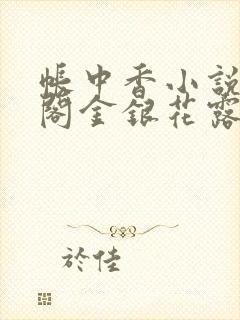 帳中香小說
閣金銀花露
於佳